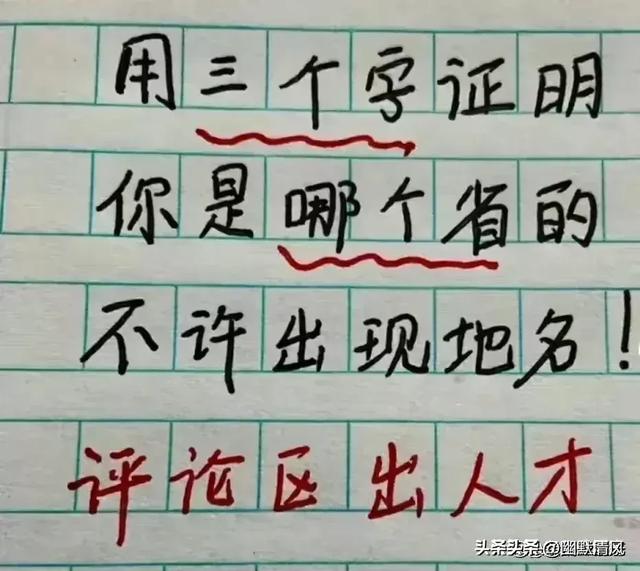 用三个字证明
你是哪个省的
不许出现地名!
评论区出人才
头条头条@幽默清风